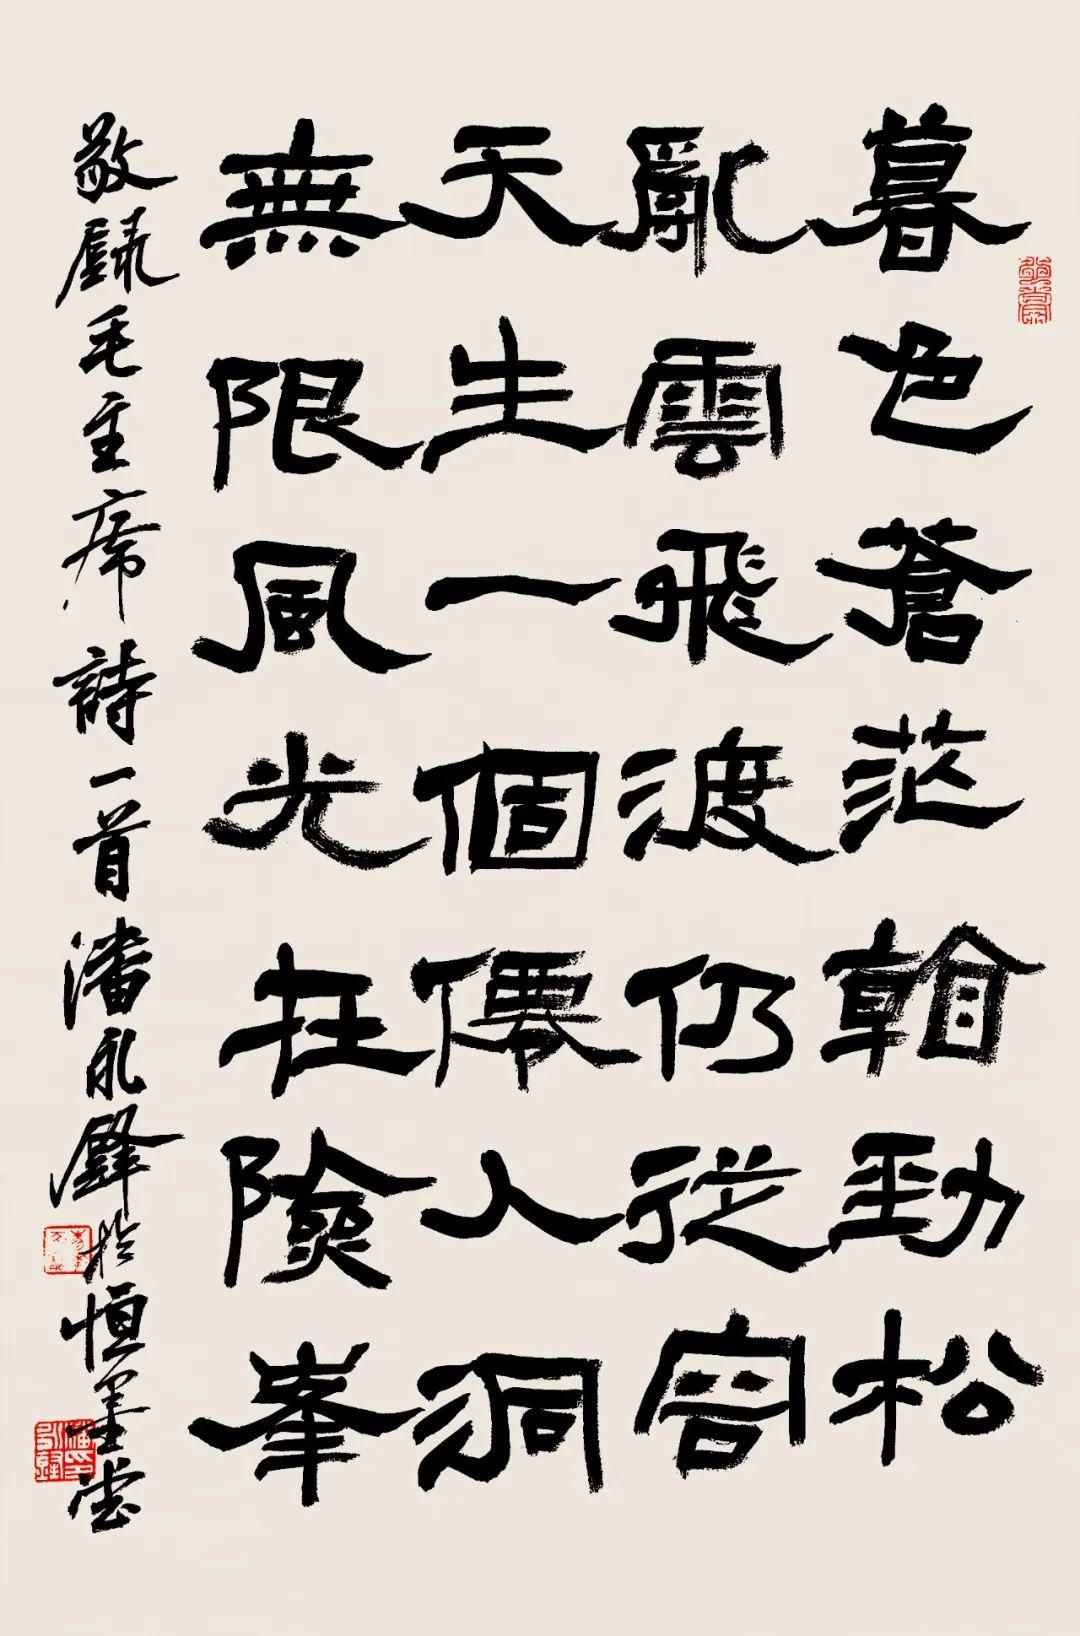 暮色蒼茫看勁松
亂雲飛渡仍從容
天生一個僊人洞
無限風光在險峯
敬録毛主席詩一首潘永鋒於恒墨堂